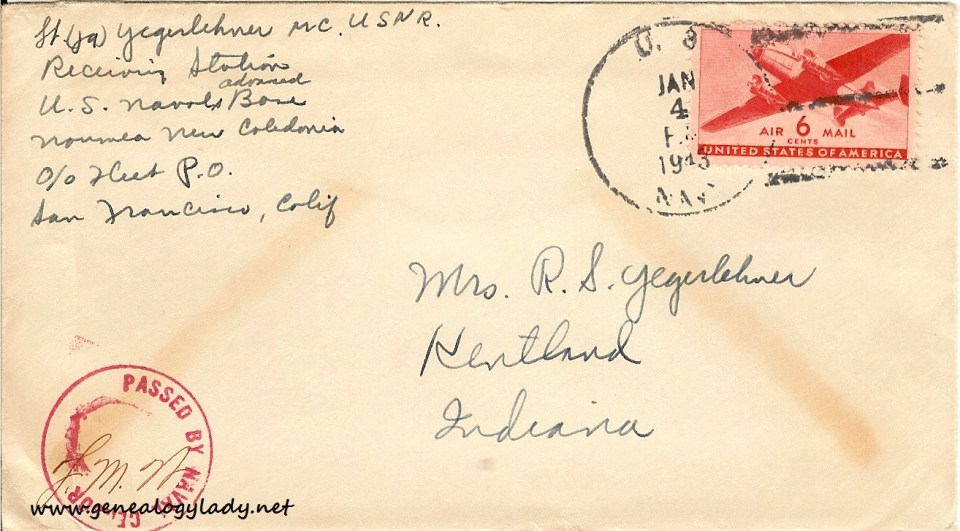 Lt (jg) Yegerlehner MC. U.S.N.R.
Receiving Station
advanced
U.S. Naval Base
Noumea New Caledonia
c/o Fleet P.O.
San Francisco, Calif
U. S.
JAN
4
1943
NAVY
AIR 6 MAIL
CENTS
UNITED STATES OF AMERICA
Mrs. R. S. Yegerlehner
Kentland
Indiana
PASSED BY NAVAL CENSOR
www.genealogylady.net